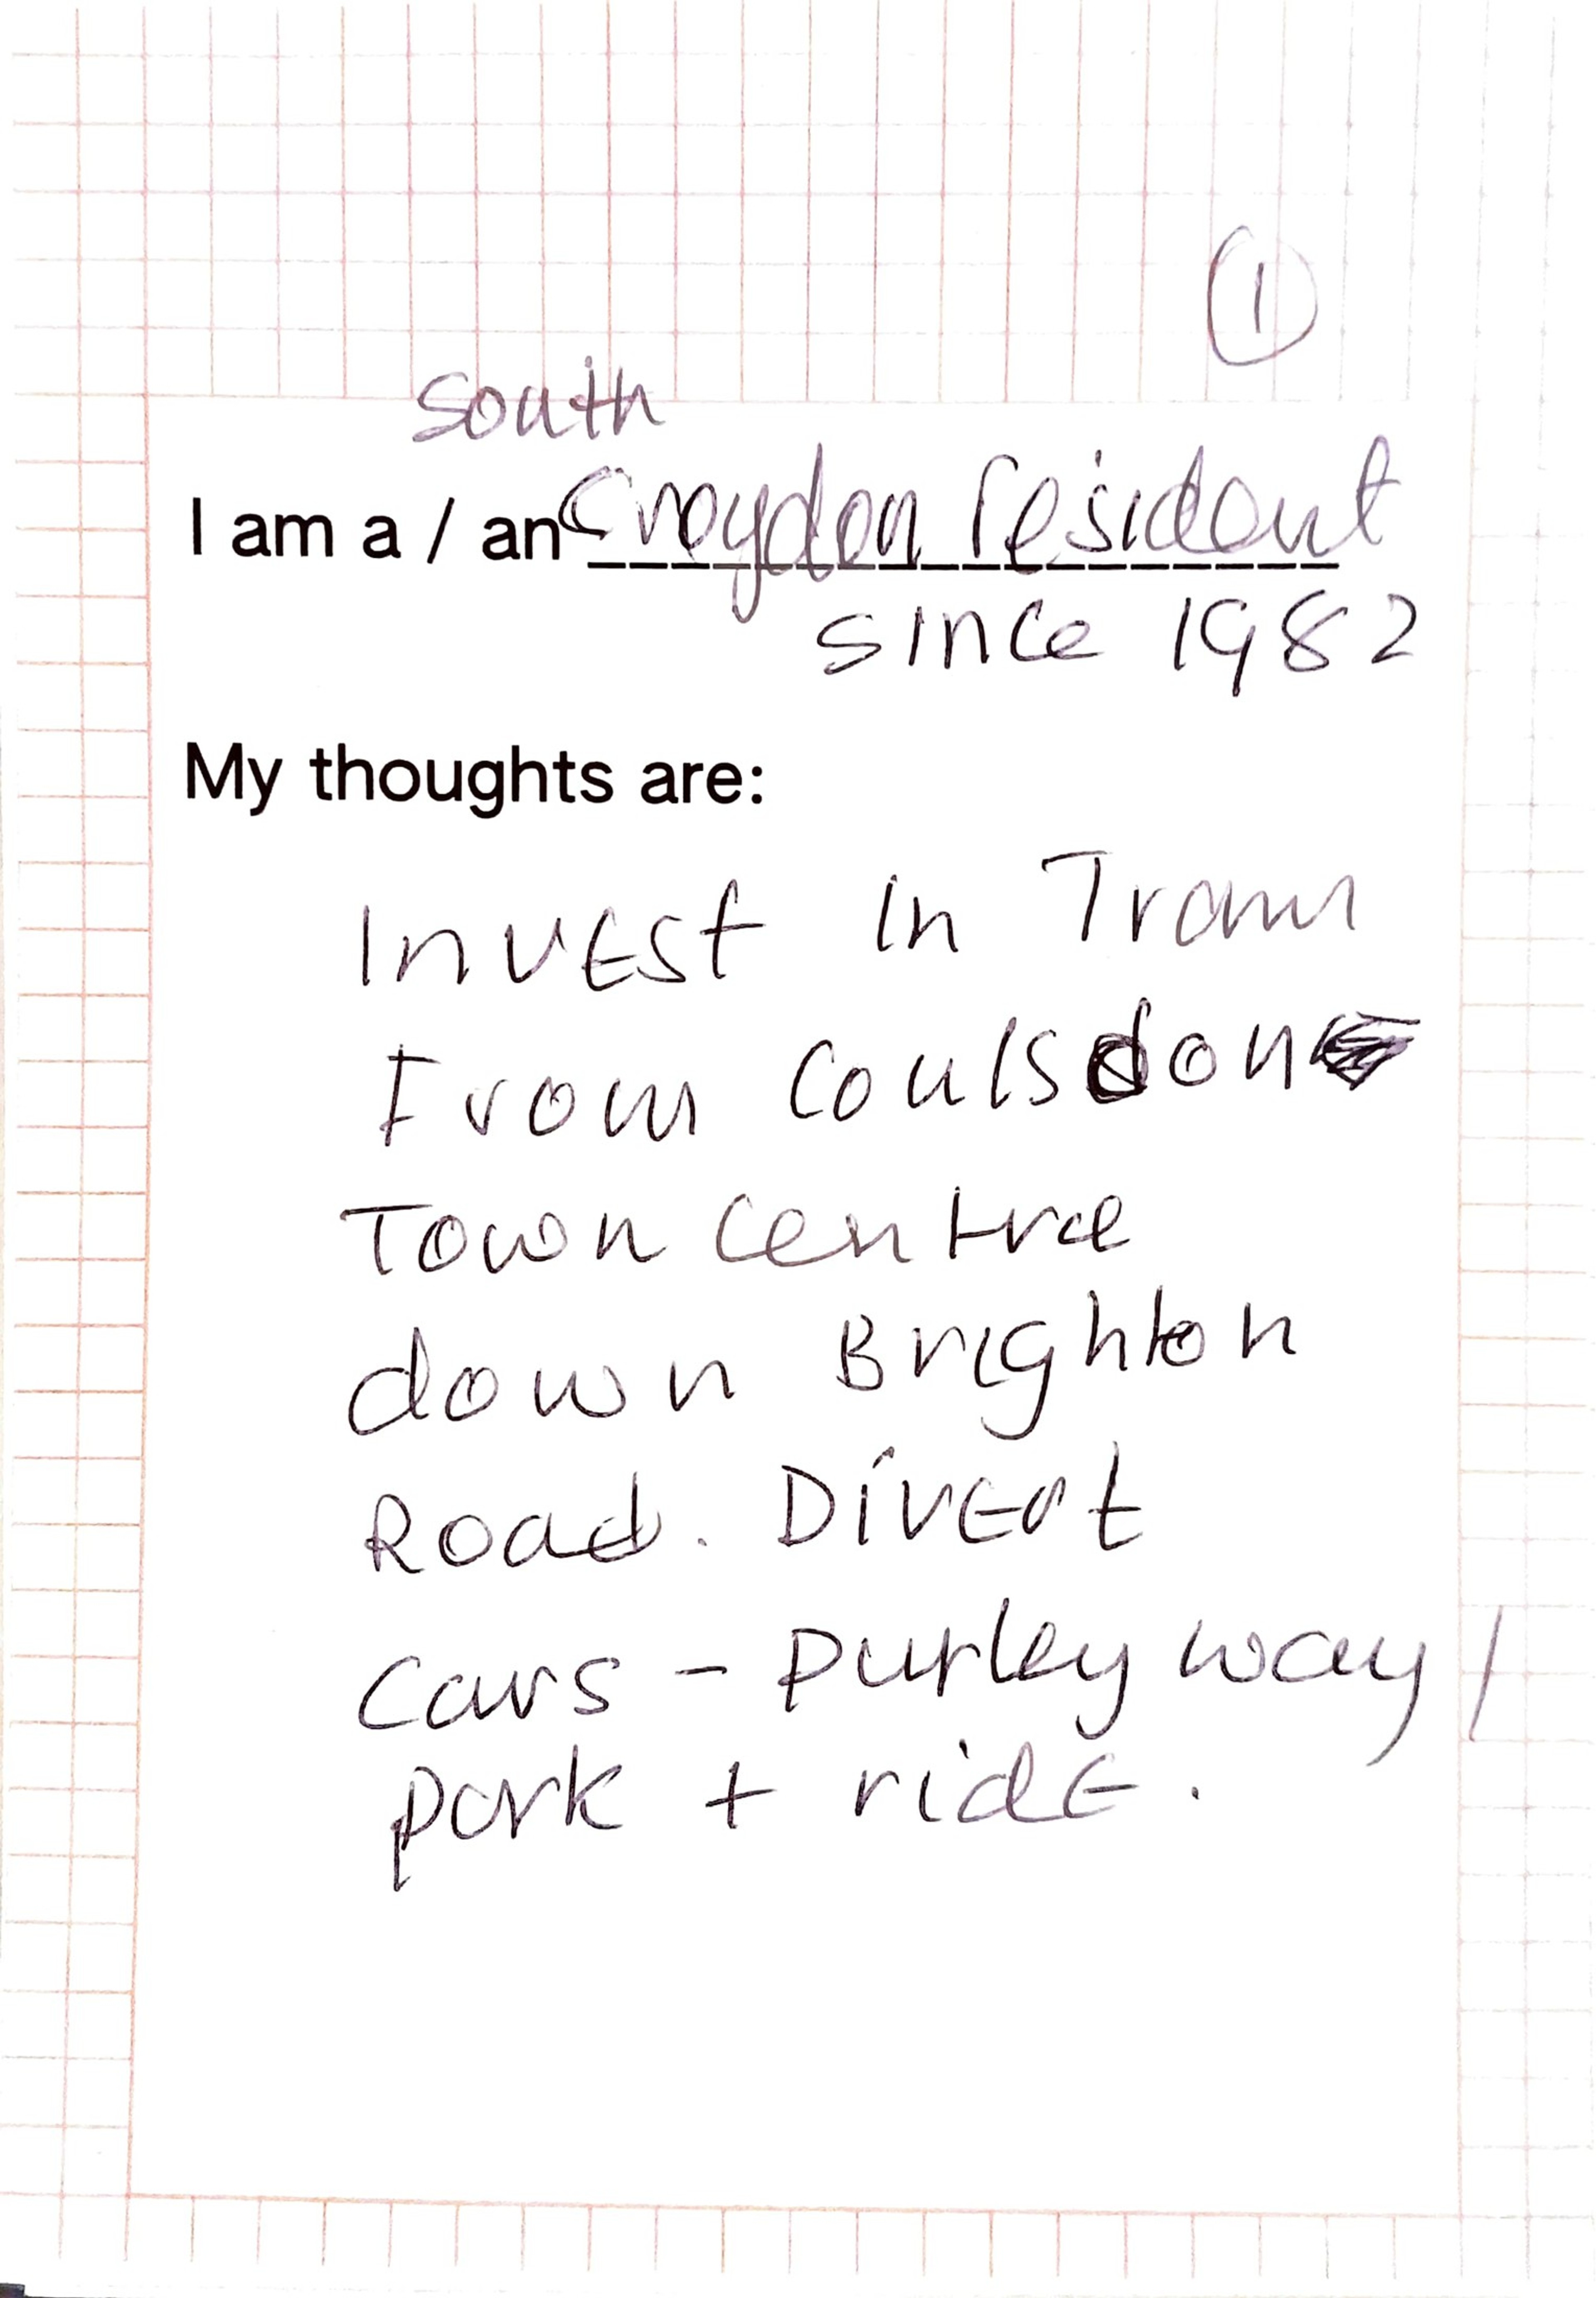 1
south
I am a / an Croydon resident
since 1982
My thoughts are:
Invest in Tram
From Coulsdon
Town centre
down Brighton
Road. Divert
cars - purley way /
park + ride.